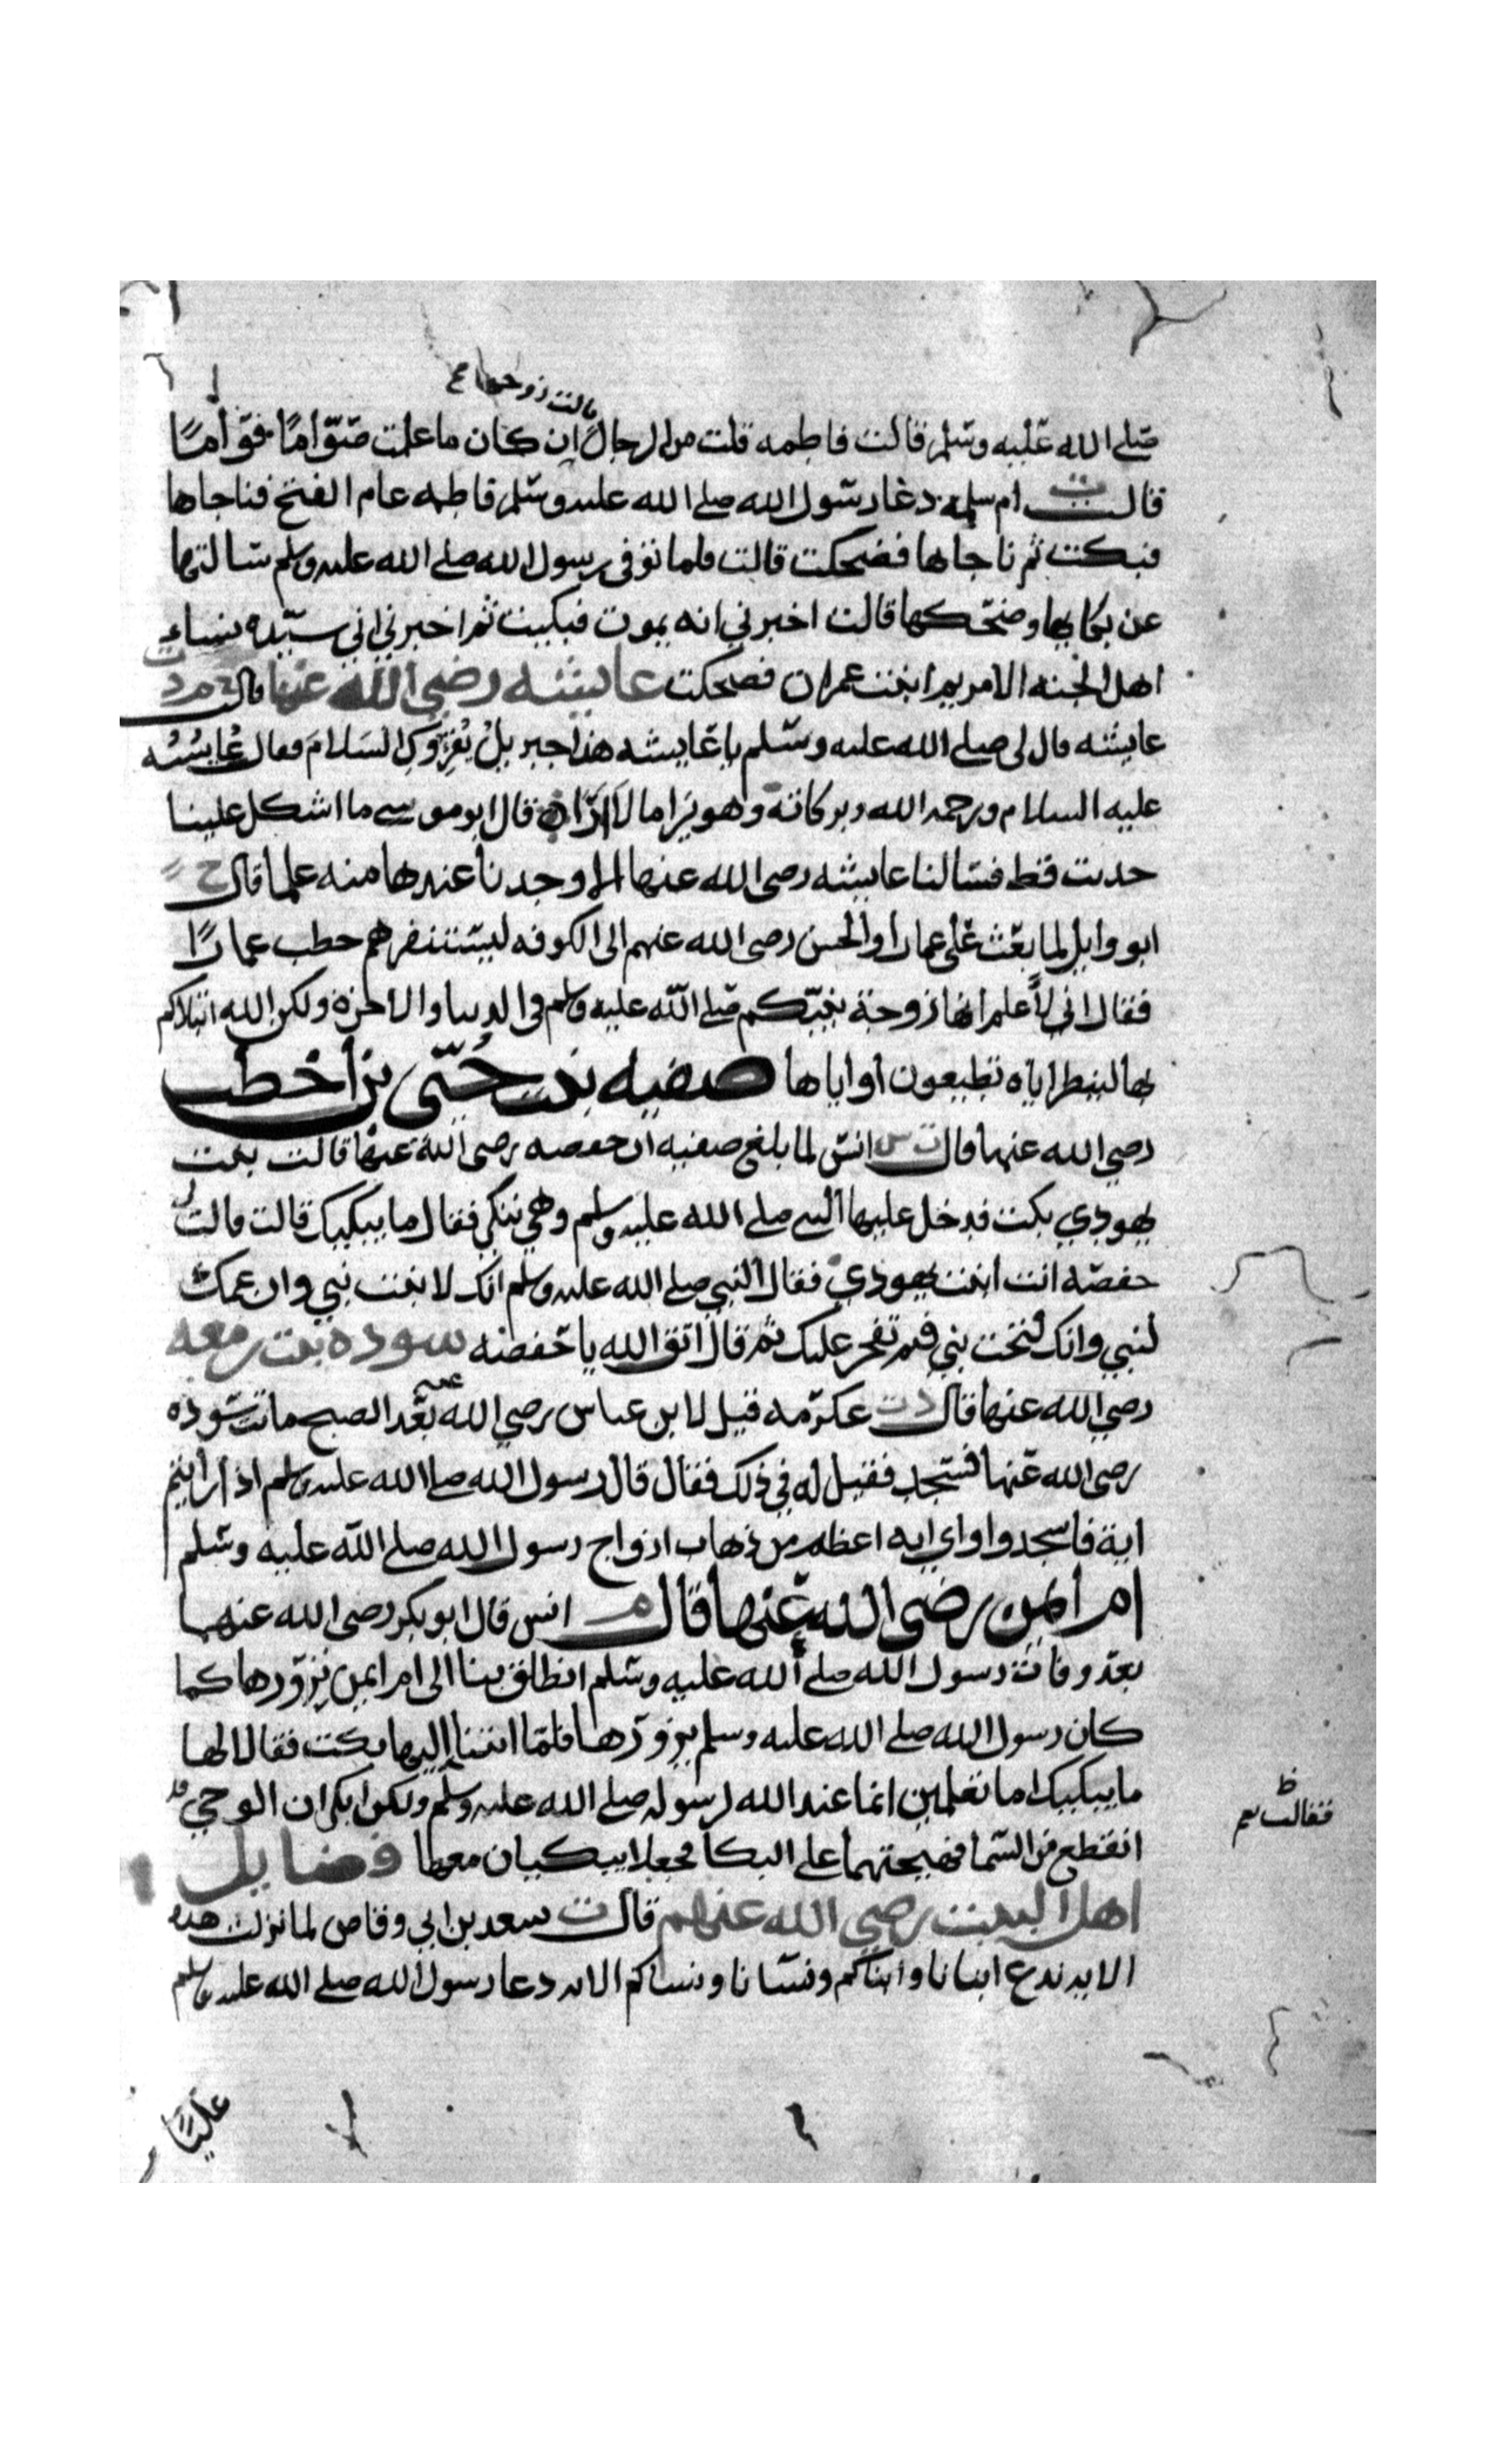 قالت زوجها
صلى الله عليه وسلم قالت فاطمه قلت من الرجال ان كان ما علمت صوّامًا قوّامًا
قالت ت ام سلمه دعا رسول الله صلى الله عليه وسلم فاطمه عام الفتح فناجاها
فبكت ثم ناجاها فضحكت قالت فلما توفى رسول الله صلى الله عليه وسلم سالتها
عن بكايها وضحكها قالت اخبرني انه يموت فبكيت ثم اخبرني اني سيّده نساء
اهل الجنه الا مريم ابنت عمران فضحكت عايشه رضي الله عنها قالت خ م د ت
عايشه قال لى صلى الله عليه وسلم يا عايشه هذا جبريل يُقرِوكِ السلام فقال عايشه
عليه السلام ورحمه الله وبركاته وهو يرا ما لا ارا ت قال ابو موسى ما اشكل علينا
حديث قط فسالنا عايشه رضى الله عنها الا وجدنا عندها منه علما قال خ
ابو وايل لما بعث على عمارا والحسن رضى الله عنهم الى الكوفه ليستنفرهم خطب عمارًا
فقال اني لأعلم انها زوجة نبيّكم صلى الله عليه وسلم في الدنيا والاخرة ولكن الله ابتلاكم
بها لينظر اياه تطيعون او اياها صفيه بنت حُيّى بن اخطب
رضي الله عنها قال ت س انس لما بلغ صفيه ان حفصه رضى الله عنها قالت بنت
يهودي بكت فدخل عليها النبي صلى الله عليه وسلم وهي تبكي فقال ما يبكيك قالت قالت لي
حفصه انت ابنت يهودي فقال النبي صلى الله عليه وسلم انك لابنت نبي وان عمك
لنبي وانك لتحت نبي فبم تفخر عليك ثم قال اتق الله يا حفصه سوده بنت زمعه
رضي الله عنها قال د ت عكرمه قيل لابن عباس رضي الله عنه بعد الصبح ماتت سوده
رضى الله عنها فسجد فقيل له في ذلك فقال قال رسول الله صلى الله عليه وسلم اذا رايتم
اية فاسجدوا واي ايه اعظم من ذهاب ازواج رسول الله صلى الله عليه وسلم
ام ايمن رضى الله عنها قال م انس قال ابو بكر رضى الله عنهما
بعد وفات رسول الله صلى الله عليه وسلم انطلق بنا الى ام ايمن نزورها كما
كان رسول الله صلى الله عليه وسلم يزورها فلمّا انتهنا اليها بكت فقالا لها
ما يبكيك اما تعلمين انما عند الله لرسوله صلى الله عليه وسلم ولكن ابكى ان الوحي قد
فقالت نعم ظ
انقطع من السما فهيجتهما على البكا فجعلا يبكيان معها فضايل
اهل البيت رضي الله عنهم قال ت سعد بن ابي وقاص لما نزلت هذه
الايه ندع ابنانا وابناكم ونسانا ونساكم الايه دعا رسول الله صلى الله عليه وسلم
عليًا